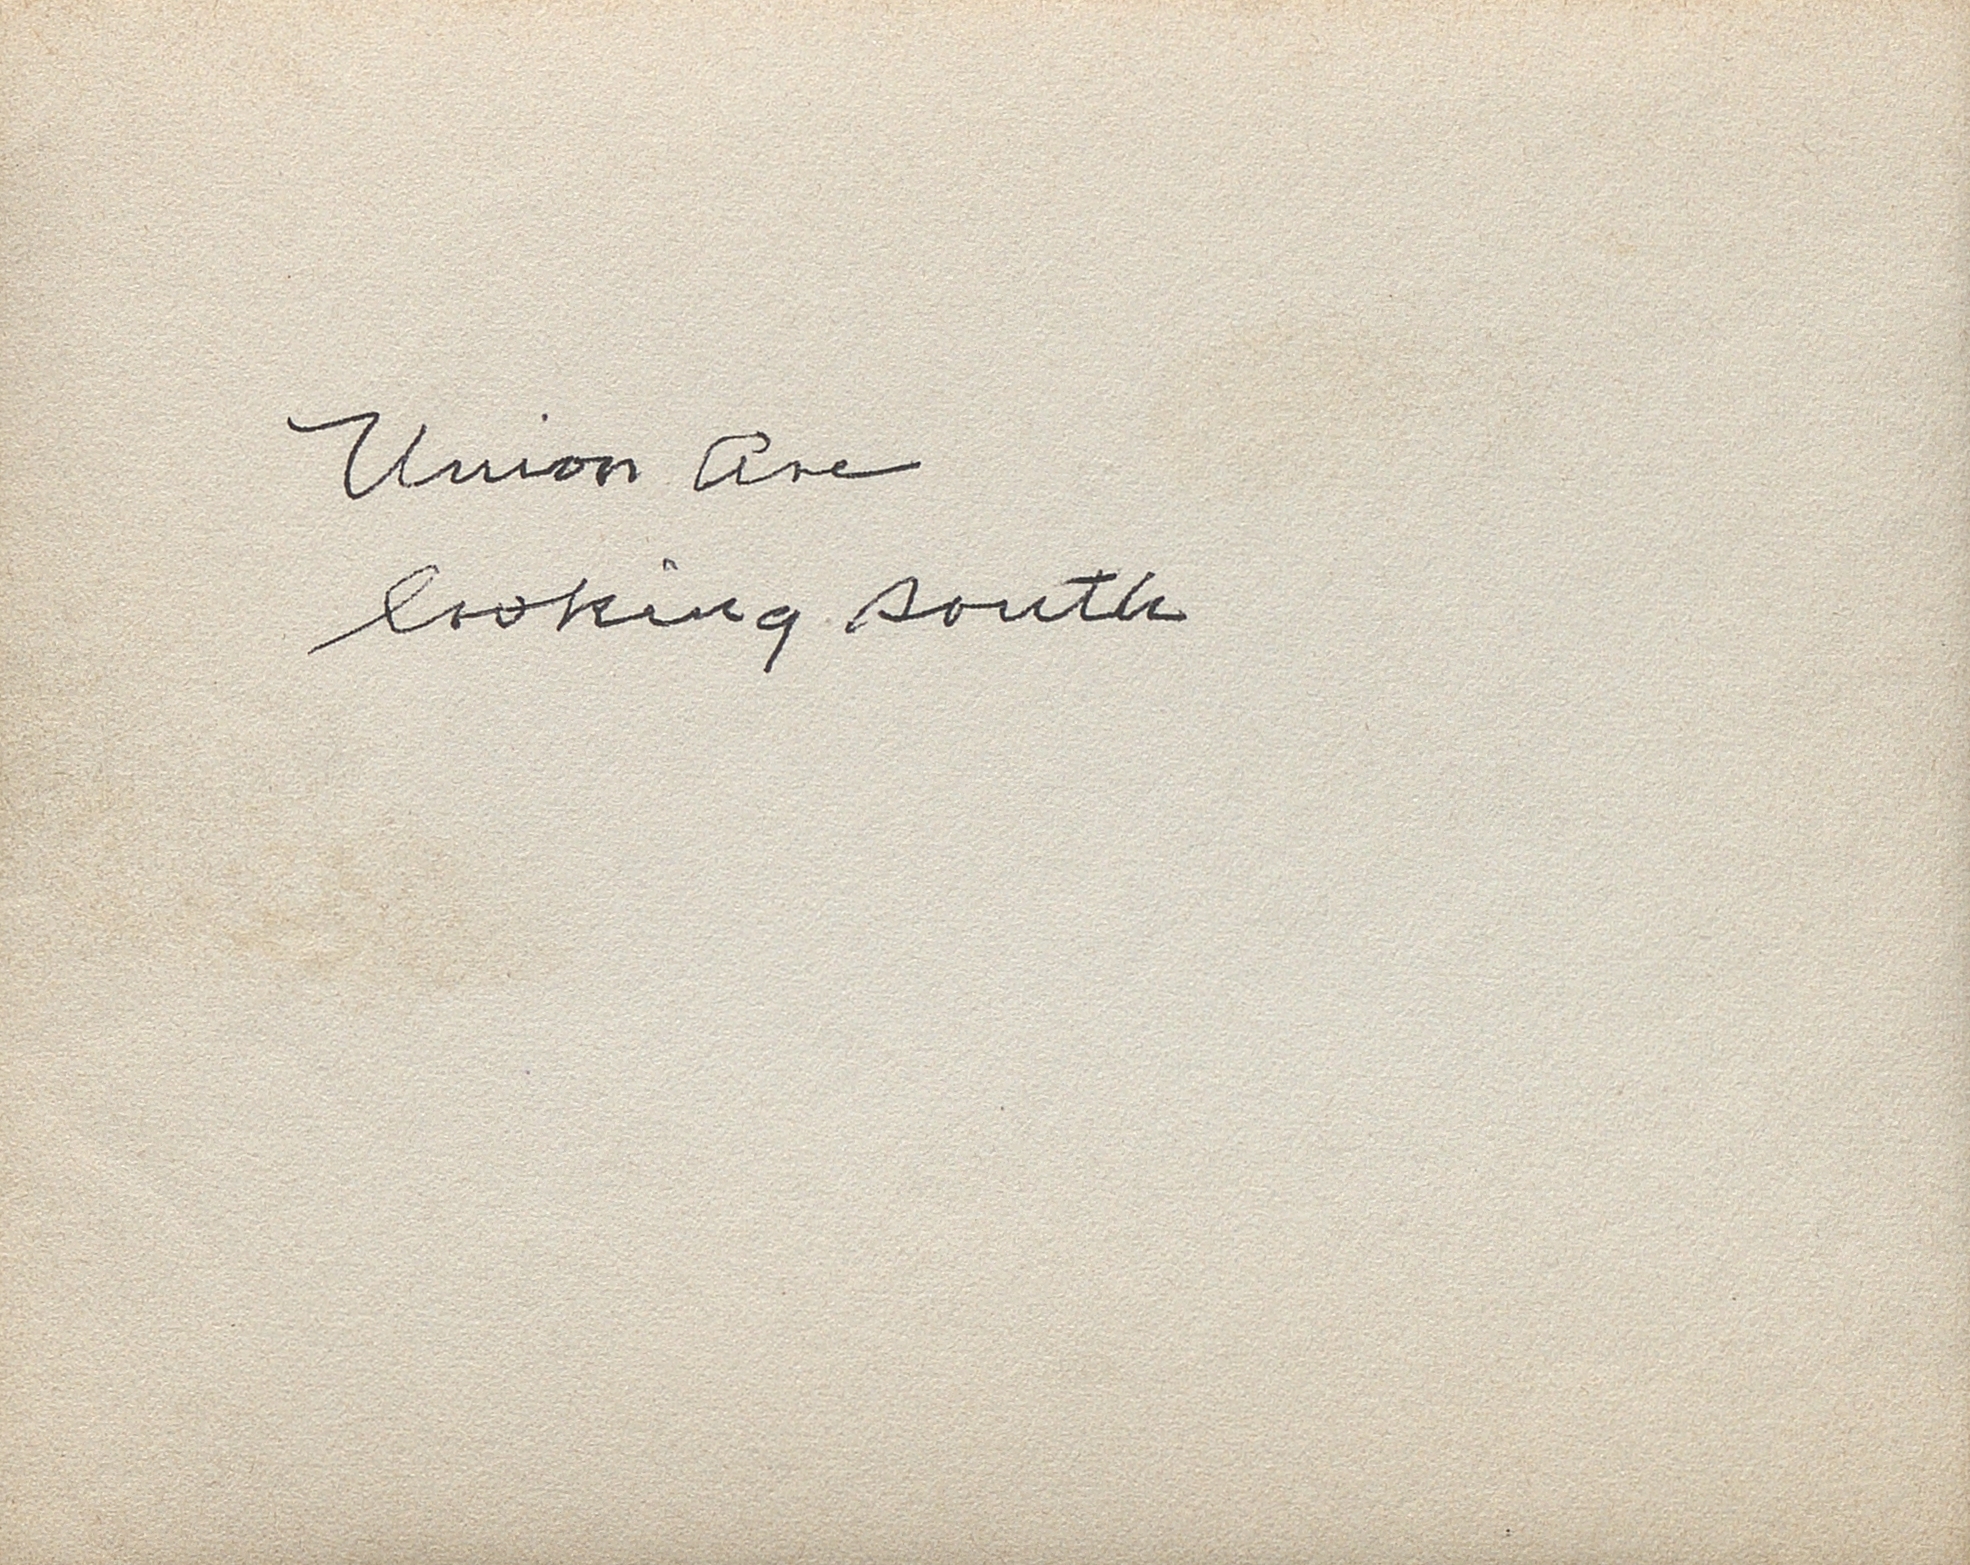 Union Ave
looking south